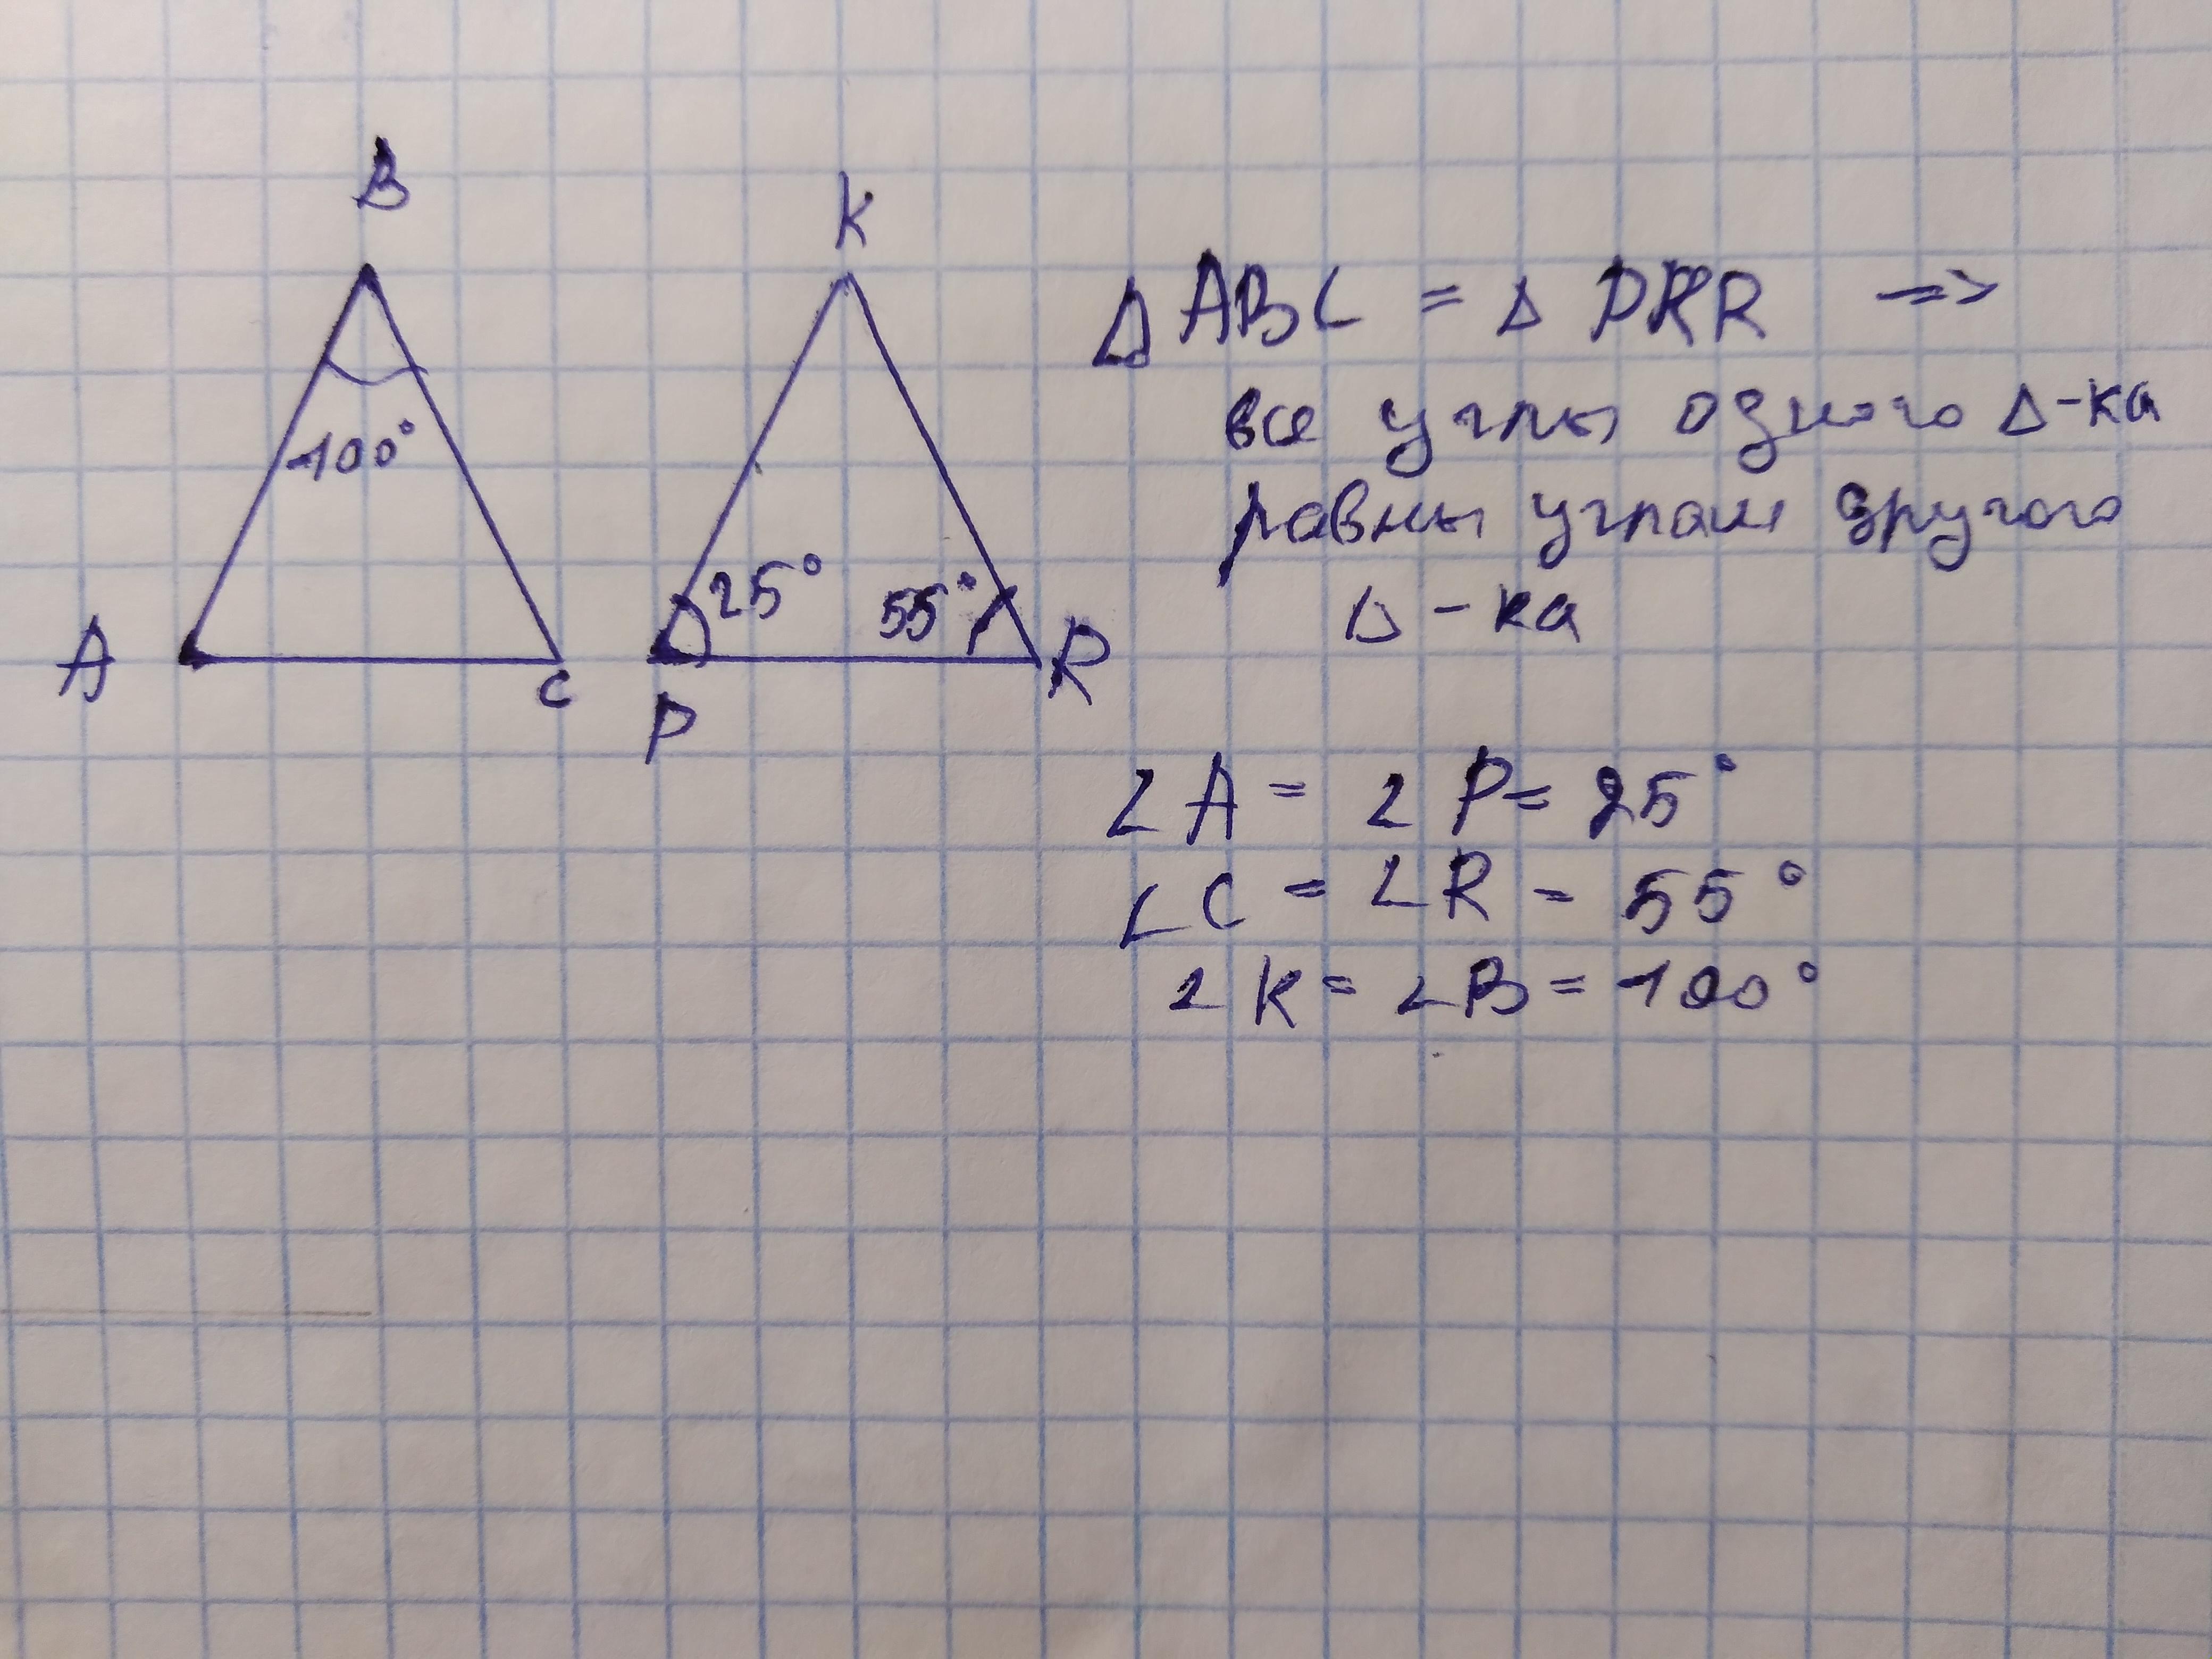 B
K
100°
A
C
25°
55°
P
R
Δ ABC = Δ PKR =>
все углы одного Δ-ка
равны углам другого
Δ-ка
∠A = ∠P = 25°
∠C = ∠R = 55°
∠K = ∠B = 100°